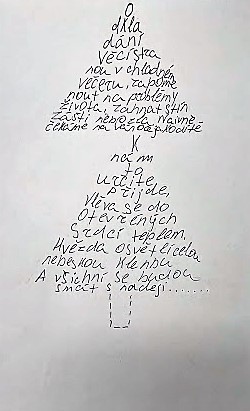 O
dkla
dání
věcí stra
nou v chladném
večeru, zapome
nout na problémy
života, zahnat stín
části nebo zla naivně
čekáme na vánoce, prostě
K
nám
to
určitě
přijde,
vlévá se do
otevřených
srdcí teplem.
Hvězda osvětlí celou
nebeskou klenbu
A všichni se budou
smát s nadějí.......